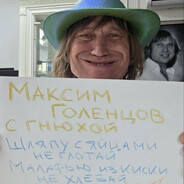 МАКСИМ
ГОЛЕНЦОВ
С ГНЮХОЙ
ШЛЯПУ С ЯЙЦАМИ
НЕ ГЛОТАЙ
МАЛАФЬЮ ИЗ КИСКИ
НЕ ХЛЕБАЙ